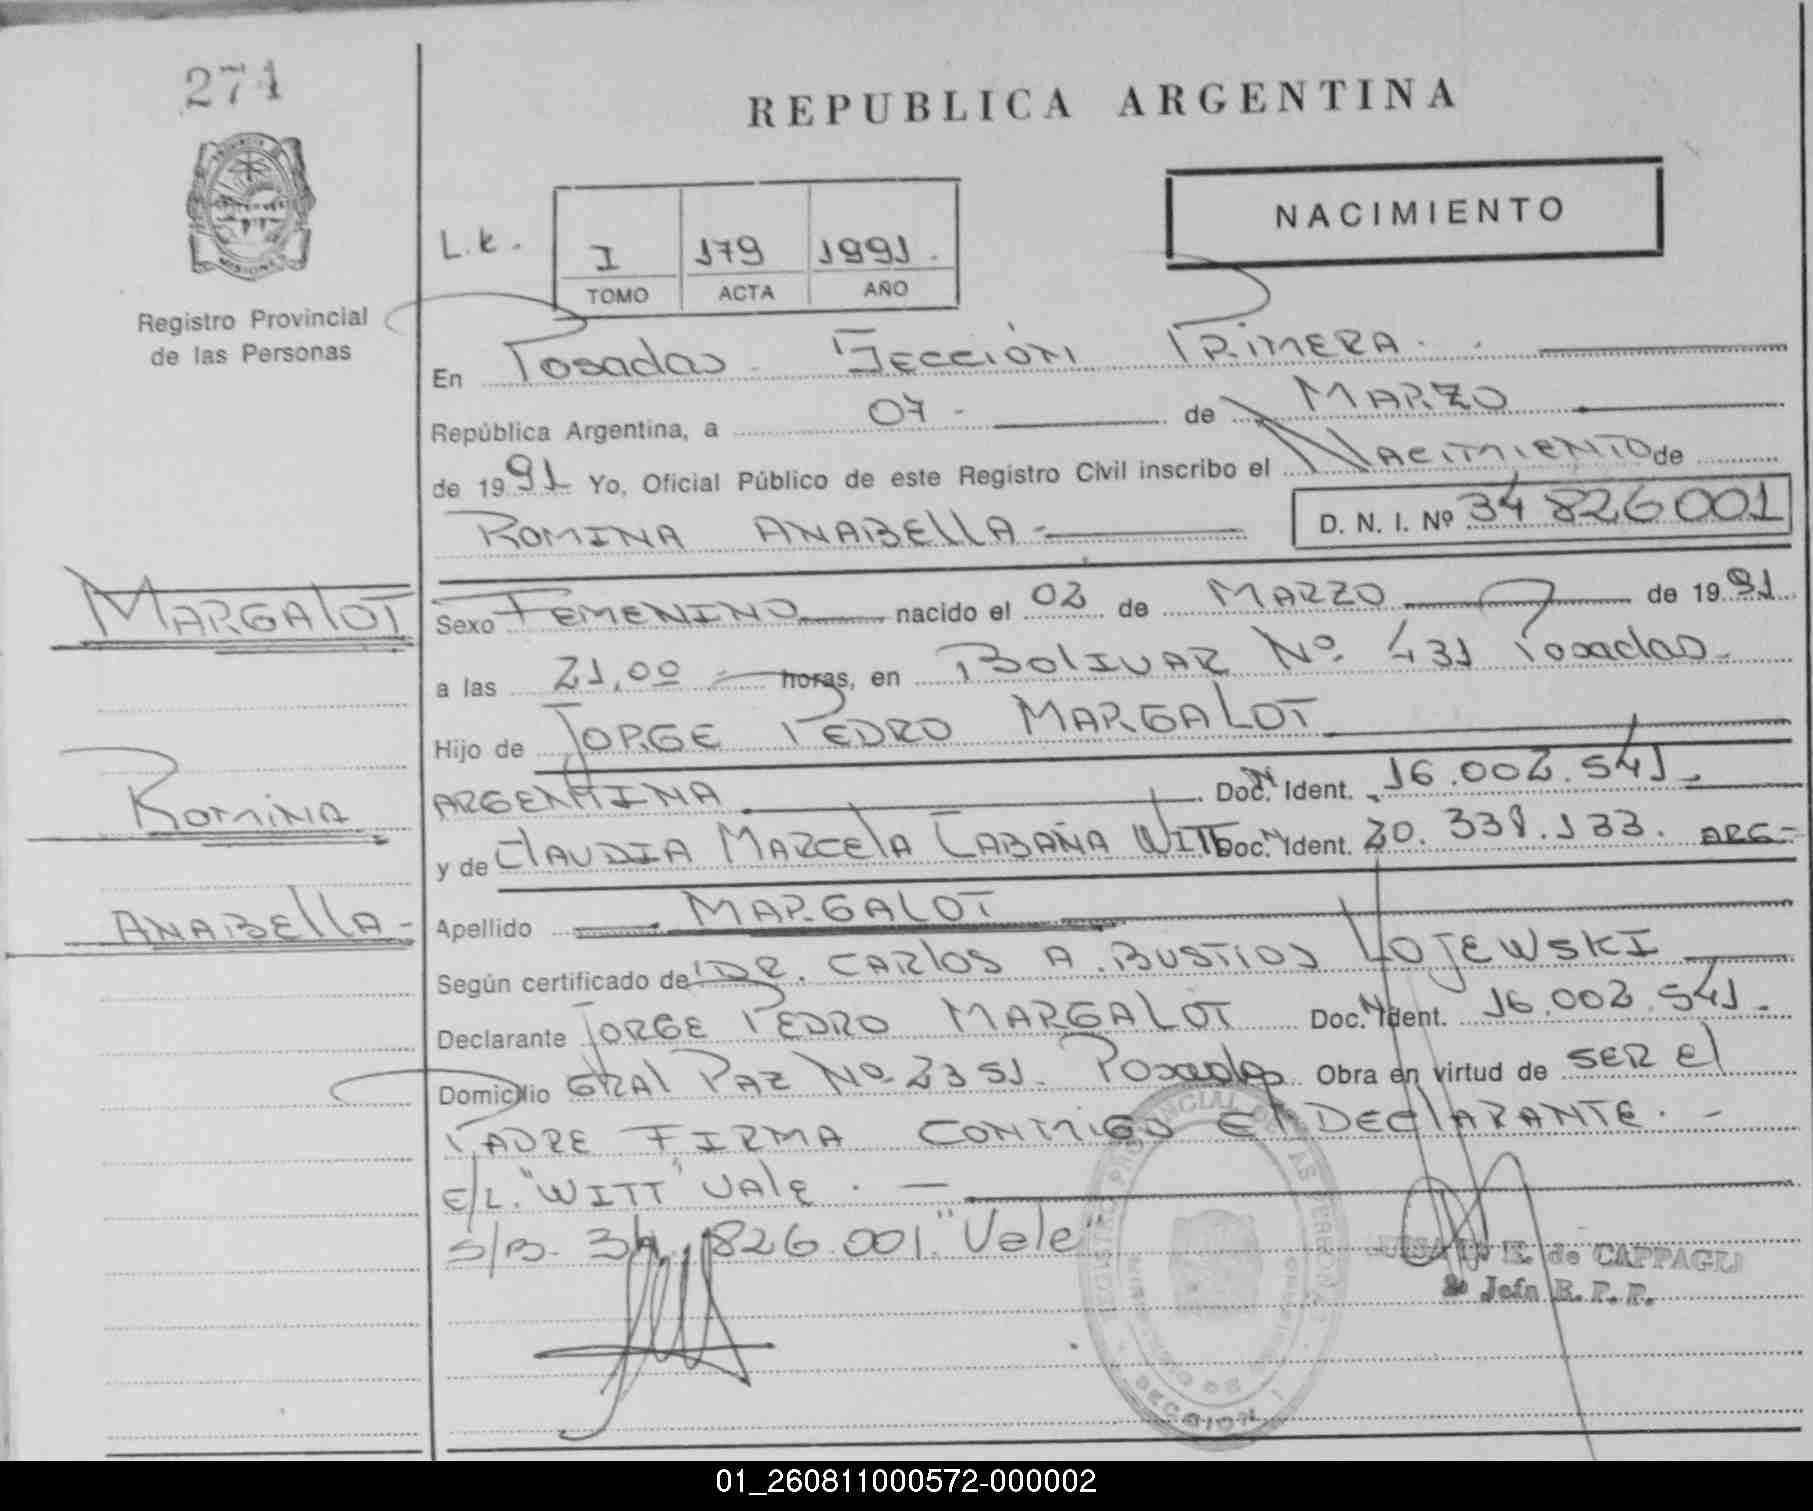 271
REPUBLICA ARGENTINA
NACIMIENTO
L.k. I 179 1991.
TOMO ACTA AÑO
MISIONES
Registro Provincial
de las Personas
En Posadas Sección Primera.
República Argentina, a 07 - de MARZO
de 1991 Yo, Oficial Público de este Registro Civil inscribo el NACIMIENTO de
ROMINA ANABELLA D. N. I. Nº 34 826 001
MARGALOT
Sexo FEMENINO nacido el 02 de MARZO de 1991
a las 21,00 horas, en BOLIVAR Nº 431 Posadas
Hijo de JORGE PEDRO MARGALOT
ARGENTINA Doc. N Ident. 16.002.541
Romina
y de CLAUDIA MARCELA CABAÑA WITT Doc. N Ident. 20.338.133. ARG-
ANABELLA-
Apellido MARGALOT
Según certificado de DR. CARLOS A. BUSTIOS LOJEWSKI
Declarante JORGE PEDRO MARGALOT Doc. N Ident. 16.002.541.
Domicilio GRAL PAZ Nº 2351. Posadas Obra en virtud de SER El
PADRE FIRMA CONMIGO El DECLARANTE. -
E/L. "WITT" VALE. -
S/B. 34.826.001. "Vale"
REGISTRO PROVINCIAL DE LAS PERSONAS
SECCION 1
de CAPPAGLI
Jefa R. P. P.
01_260811000572-000002